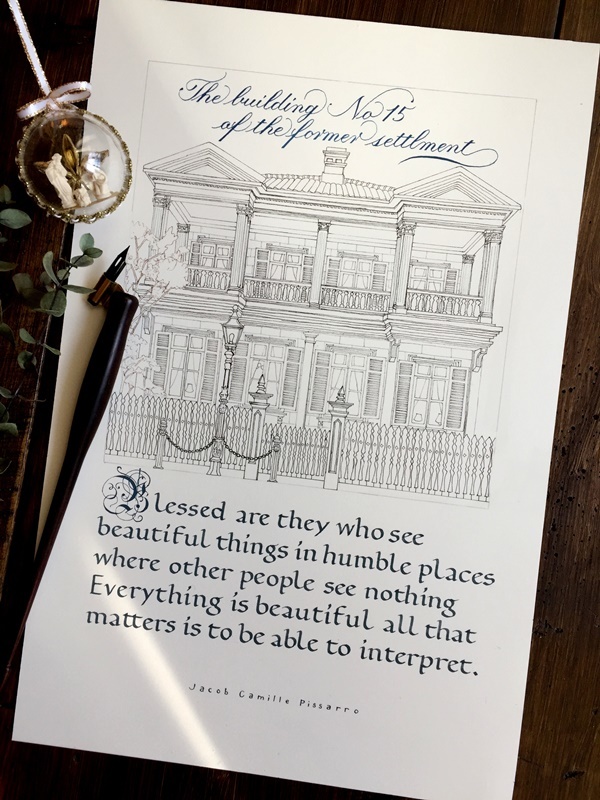 The building No 15
of the former settlment
Blessed are they who see
beautiful things in humble places
where other people see nothing
Everything is beautiful all that
matters is to be able to interpret.
Jacob Camille Pissarro